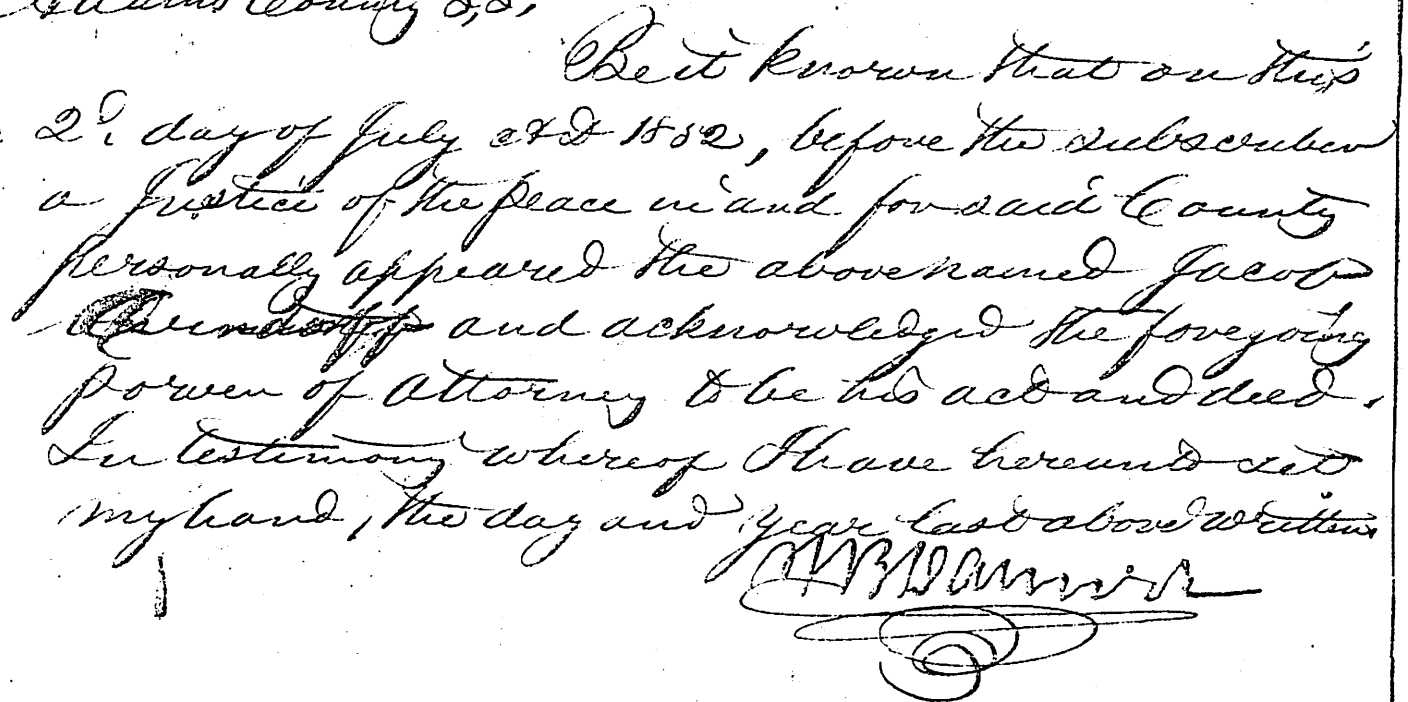 Adams County S,S,
Be it known that on this
2d. day of July A D 1852, before the subscriber
a Justice of the peace in and for said County
personally appeared the above named Jacob
and acknowledged the foregoing
power of Attorney to be his act and deed.
In testimony whereof I have hereunto set
my hand, the day and year last above written